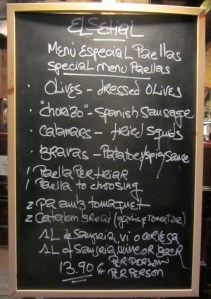 EL SETIAL
Menú Especial Paellas
Special menu Paellas
· OLIVES - dressed OLIVES
· "Chorizo" - Spanish Sausage
· Calamares - fried squids
· BRAVAS - Patatoe/Spicy Sauce
1 Paella per triar
1 Paella to choosing
2 Pa amb tomaquet
2 Catalan bread (garlic, tomatoe)
1 L de Sangria, vi o cervesa
1 L of Sangria, wine or beer
PER PERSON
13.90 € PER PERSON